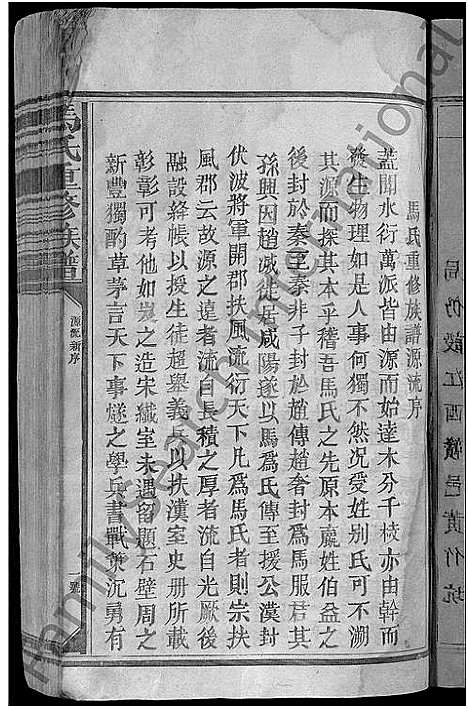 局仍設江西贛邑黃竹坑
馬氏重修族譜源流序
蓋聞水衍萬派皆由源而始達木分千枝亦由幹而
發生物理如是人事何獨不然况受姓别氏可不溯
其源而探其本乎稽吾馬氏之先原本嬴姓伯益之
後封於秦至秦非子封於趙傳趙奢封爲馬服君其
孫興因趙滅徙居咸陽遂以馬爲氏傳至援公漢封
伏波將軍開郡扶風流衍天下凡爲馬氏者則宗扶
風郡云故源之遠者流自長積之厚者流自光厥後
融設絳帳以授生徒超舉義兵以扶漢室史册所載
彰彰可考他如岌之造宋纖室未遇留題石壁周之
新豐獨酌草茅言天下事燧之學兵書戰策沉勇有
馬氏重修族譜
源流新序
一號
FamilySearch International